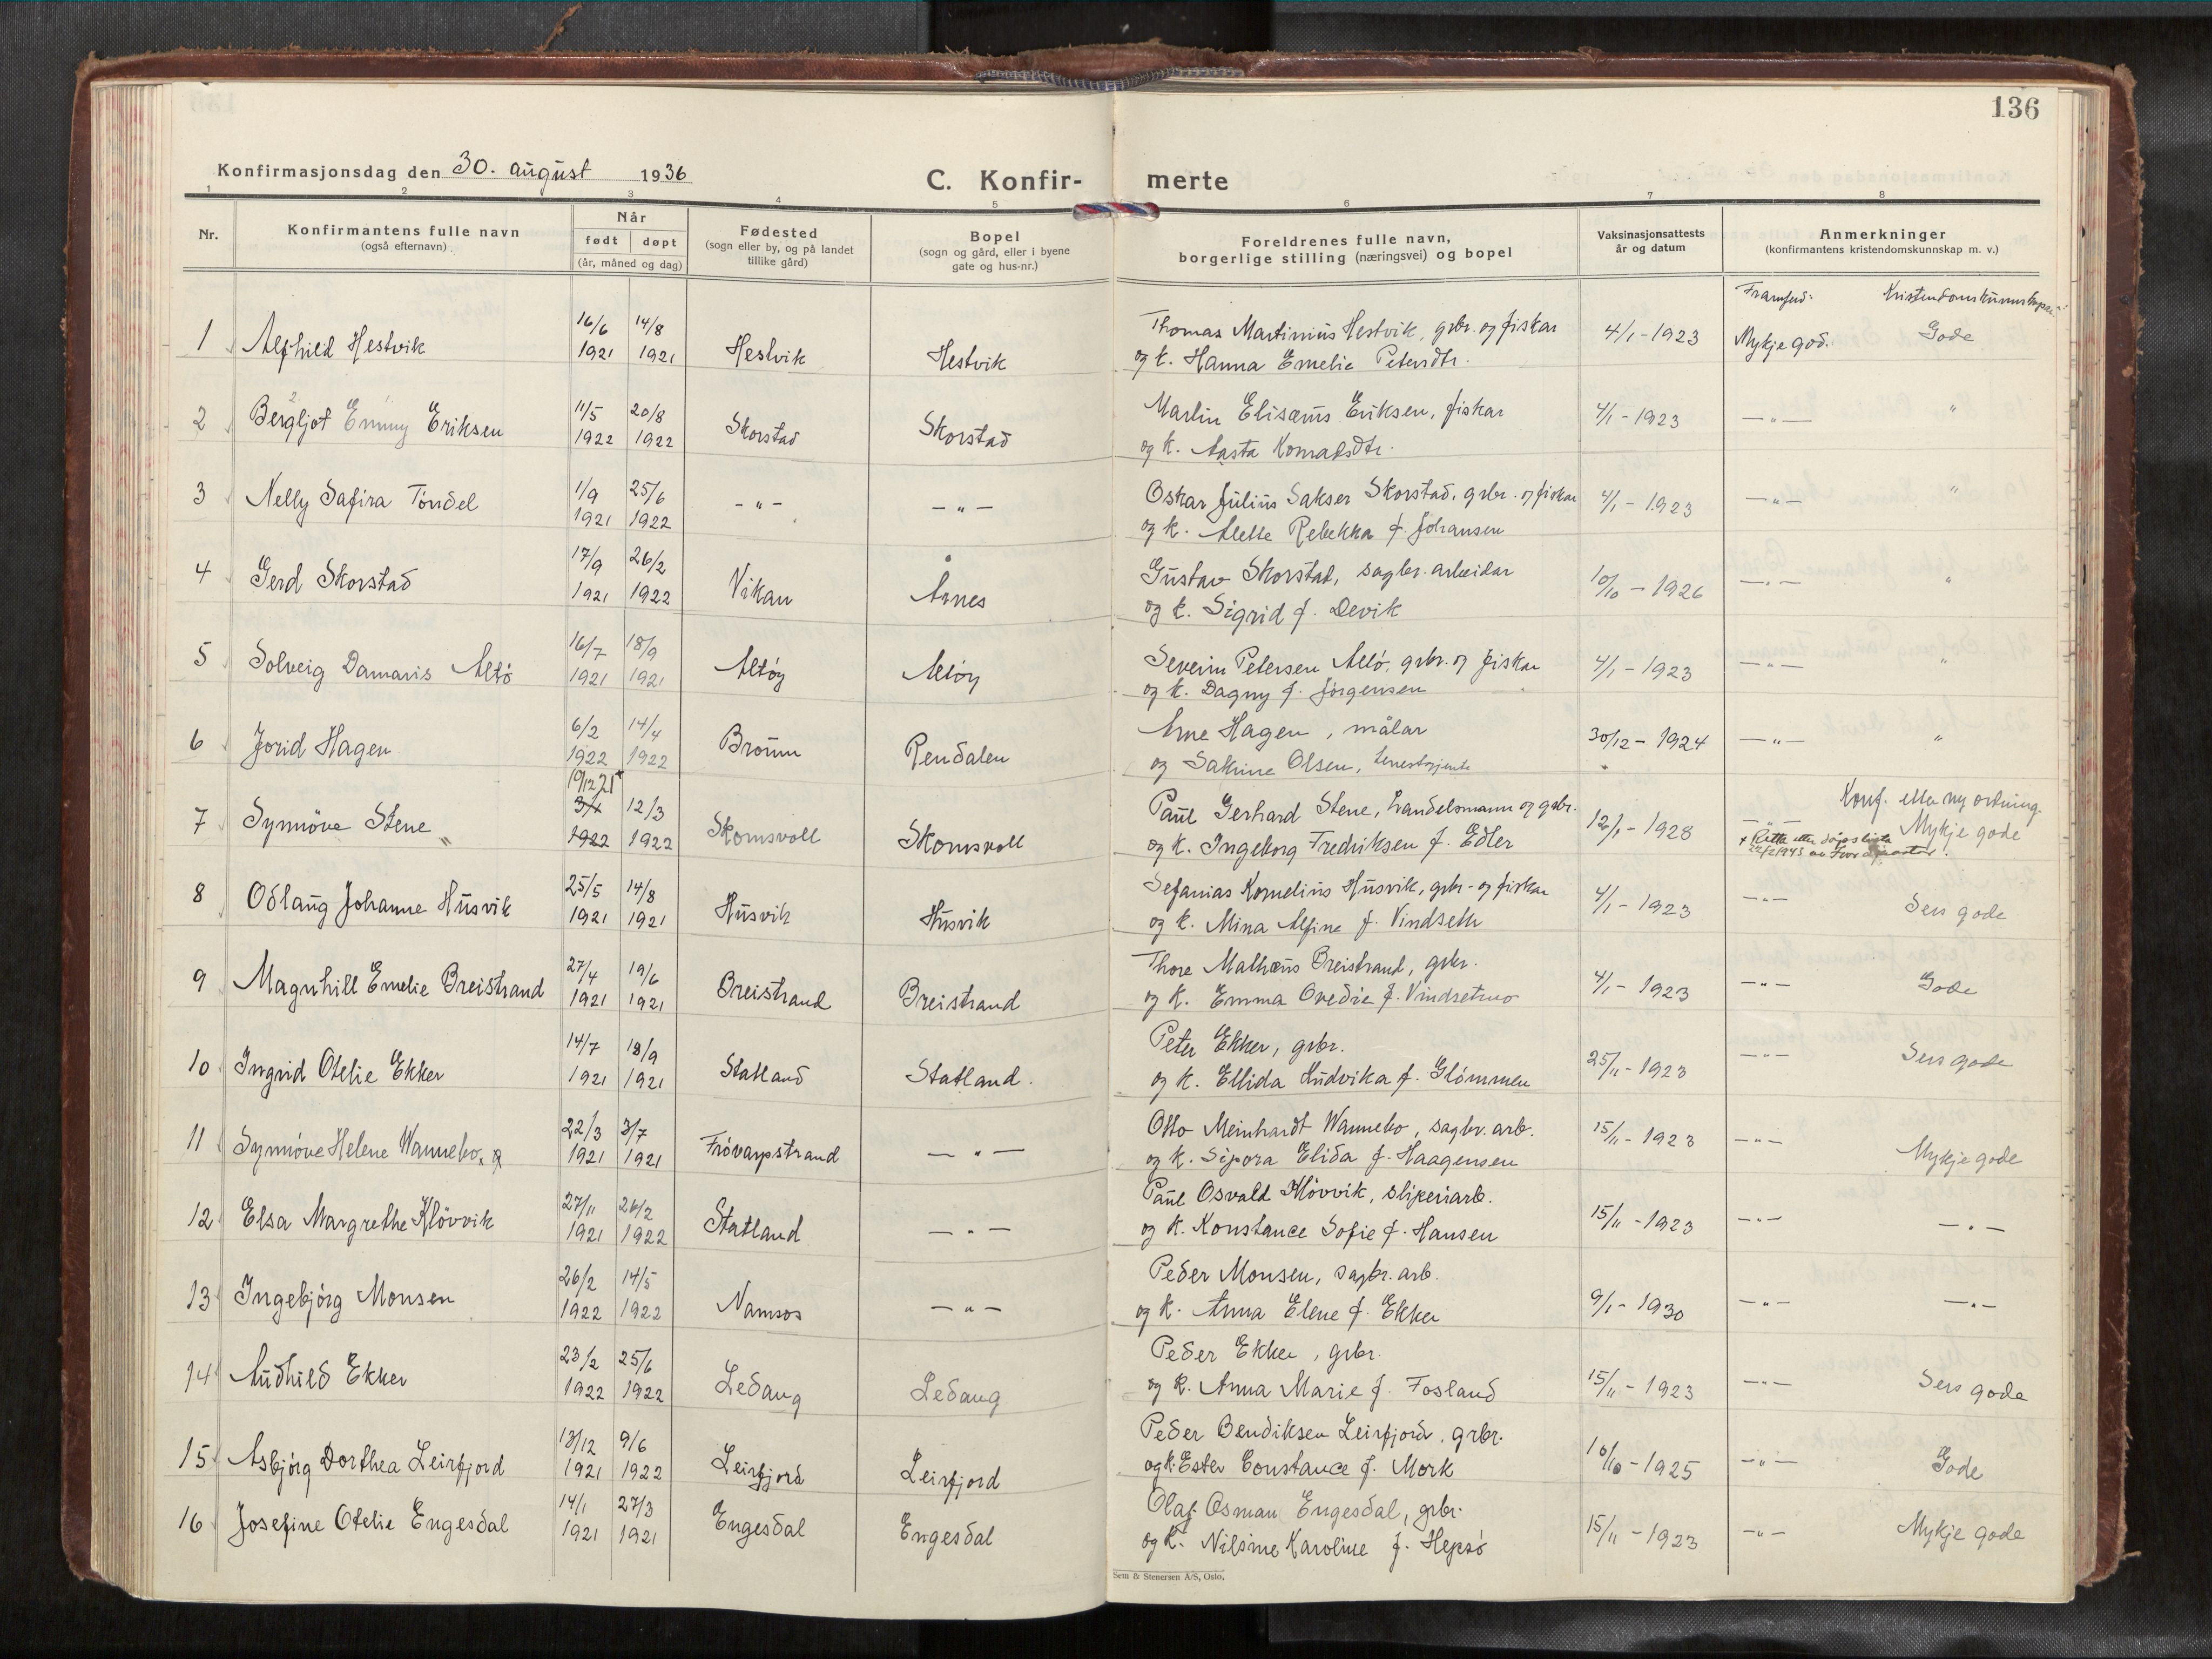 136
Konfirmasjonsdag den 30. august 1936
C. Konfir- merte
1 2 3 4 5 6 7 8
Nr.
Konfirmantens fulle navn
(også efternavn)
Når
født døpt
(år, måned og dag)
Fødested
(sogn eller by, og på landet
tillike gård)
Bopel
(sogn og gård, eller i byene
gate og hus-nr.)
Foreldrenes fulle navn,
borgerlige stilling (næringsvei) og bopel
Vaksinasjonsattests
år og datum
Anmerkninger
(konfirmantens kristendomskunnskap m. v.)
Framferd: Kristendomskunnskapen:
1 Alfhild Hestvik 16/6 1921 14/8 1921 Hestvik Hestvik Thomas Martinius Hestvik, grbr. og fiskar 4/1-1923 Mykje god. Gode
og k. Hanna Emelie Petersdtr.
2 Bergljot Emmy Eriksen 11/5 1922 20/8 1922 Skorstad Skorstad Martin Elisæus Eriksen, fiskar 4/1-1923 —"— "
og k. Aasta Konradsdtr.
3 Nelly Safira Töndel 1/9 1921 25/6 1922 -"- —"— Oskar Julius Sakser Skorstad, grbr. og fiskar 4/1-1923 —"— "
og k. Alette Rebekka f. Johansen
4 Gerd Skorstad 17/9 1921 26/2 1922 Vikan Årnes Gustav Skorstad, sagbr. arbeidar 10/10-1926 —"— "
og k. Sigrid f. Devik
5 Solveig Damaris Altö 16/7 1921 18/9 1921 Altöy Altöy Severin Petersen Altö, grbr. og fiskar 4/1-1923 —"— "
og k. Dagny f. Jörgensen
6 Jorid Hagen 6/2 1922 14/4 1922 Brönn Rendalen Arne Hagen, målar 30/12-1924 —"— "
og Sakrine Olsen, tenestgjente
7 Synnöve Stene 19/12 21 x 3/1 1922 12/3 1922 Skomsvoll Skomsvoll Paul Gerhard Stene, handelsmann og grbr. 12/1-1928 —"— Konf. etter ny ordning. Mykje gode
og k. Ingeborg Fredriksen f. Edler
8 Odlaug Johanne Husvik 25/5 1921 14/8 1921 Husvik Husvik Sefanias Kornelius Husvik, grbr. og fiskar 4/1-1923 —"— Sers gode
og k. Mina Alfine f. Vindseth
9 Magnhill Emelie Breistrand 27/4 1921 19/6 1921 Breistrand Breistrand Thore Mathæus Breistrand, grbr. 4/1-1923 —"— Gode
og k. Emma Ovedie f. Vindsetmo
10 Ingrid Otelie Ekker 14/7 1921 18/9 1921 Statland Statland. Peter Ekker, grbr. 25/11-1923 —"— Sers gode
og k. Ellida Hudvika f. Glömmen
11 Synnöve Helene Wannebo 22/3 1921 3/7 1921 Frövarpstrand —"— Otto Meinhardt Wannebo, sagbr. arb. 15/11-1923 —"— Mykje gode
og k. Sipora Elida f. Haagensen
12 Elsa Margrethe Klövvik 27/11 1921 26/2 1922 Statland —"— Paul Osvald Klövvik, sliperiarb. 15/11-1923 —"— —"—
og k. Konstance Sofie f. Hansen
13 Ingebjörg Monsen 26/2 1922 14/5 1922 Namsos —"— Peder Monsen, sagbr. arb. 9/1-1930 —"— —"—
og k. Anna Elene f. Ekker
14 Audhild Ekker 23/2 1922 25/6 1922 Ledang Ledang Peder Ekker, grbr. 15/11-1923 —"— Sers gode
og k. Anna Marie f. Fosland
15 Asbjörg Dorthea Leirfjord 13/12 1921 9/6 1922 Leirfjord Leirfjord Peder Bendiksen Leirfjord, grbr. 10/10-1925 —"— Gode
og k. Ester Constance f. Mork
16 Josefine Otelie Engesdal 14/1 1921 27/3 1921 Engesdal Engesdal Olaf Osman Engesdal, grbr. 15/11-1923 —"— Mykje gode
og k. Nilsine Karoline f. Hepsö
Sem & Stenersen A/S, Oslo.